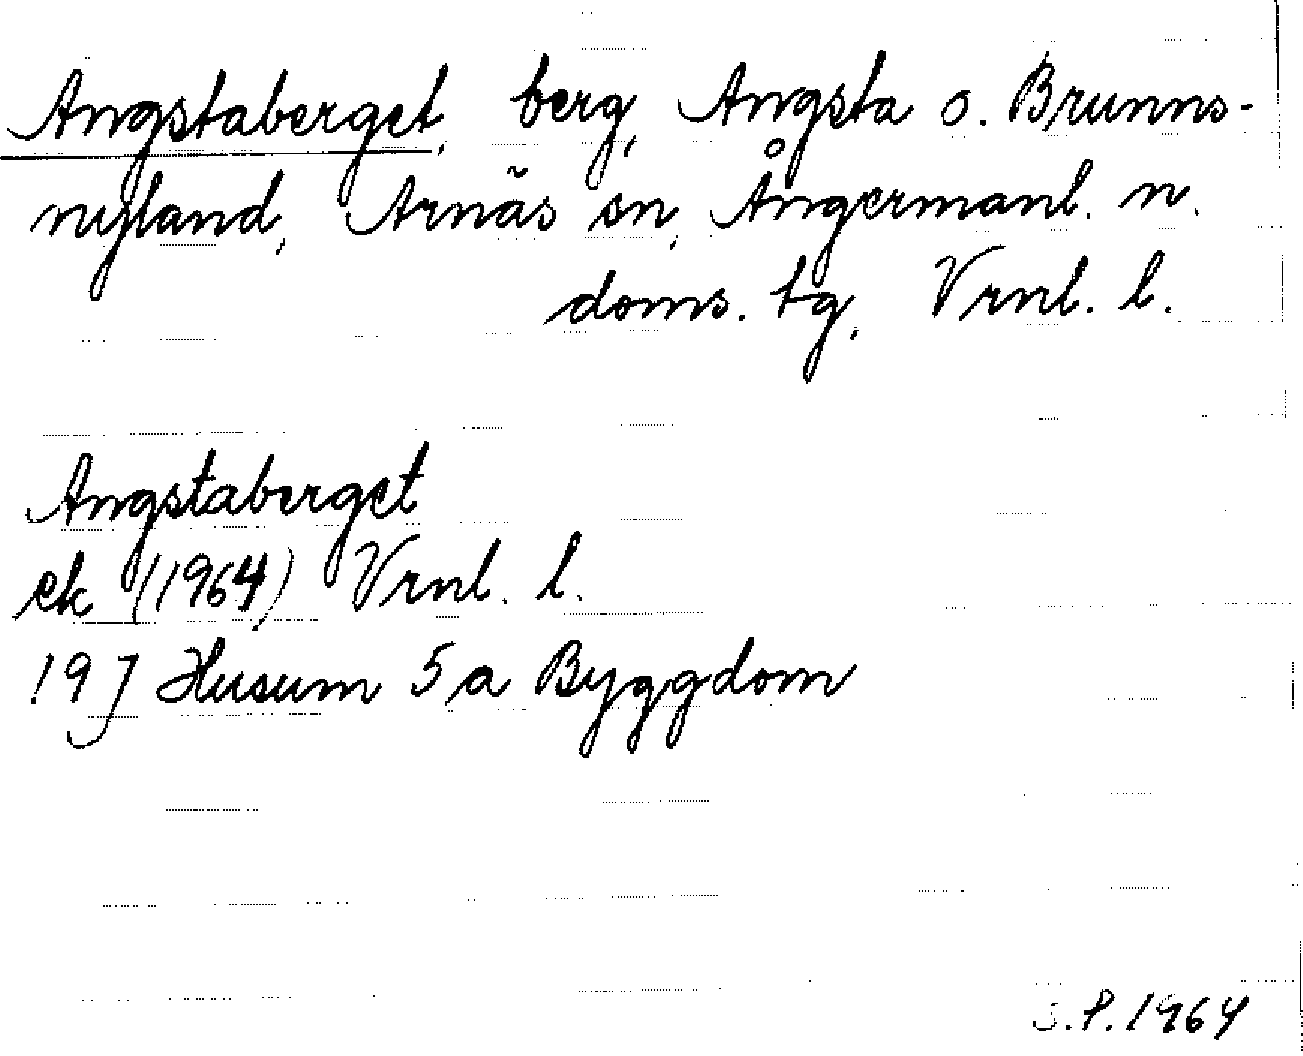 Angstaberget, berg, Angsta o. Brunns-
nyland, Arnäs sn, Ångermanl. n.
doms. tg, Vrnl. l.
Angstaberget
ek (1964) Vrnl. l.
19 J Husum 5 a Byggdom
S.P. 1964